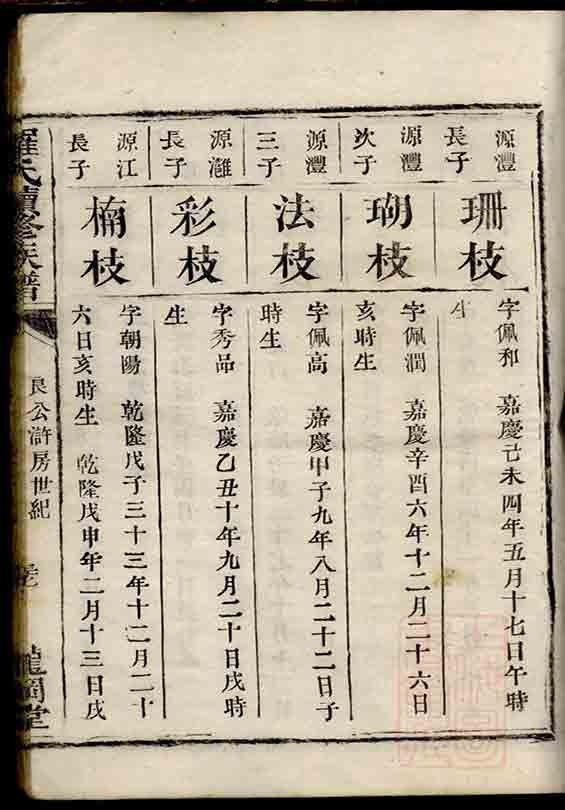 源灃
長子
珊枝
字佩和 嘉慶己未四年五月十七日午時
生
源灃
次子
瑚枝
字佩潤 嘉慶辛酉六年十二月二十六日
亥時生
源灃
三子
法枝
字佩高 嘉慶甲子九年八月二十二日子
時生
源灘
長子
彩枝
字秀品 嘉慶乙丑十年九月二十日戌時
生
源江
長子
楠枝
字朝陽 乾隆戊子三十三年十二月二十
六日亥時生 乾隆戊申年二月十三日戌
羅氏續修族譜
良公滸房世紀
龍岡堂